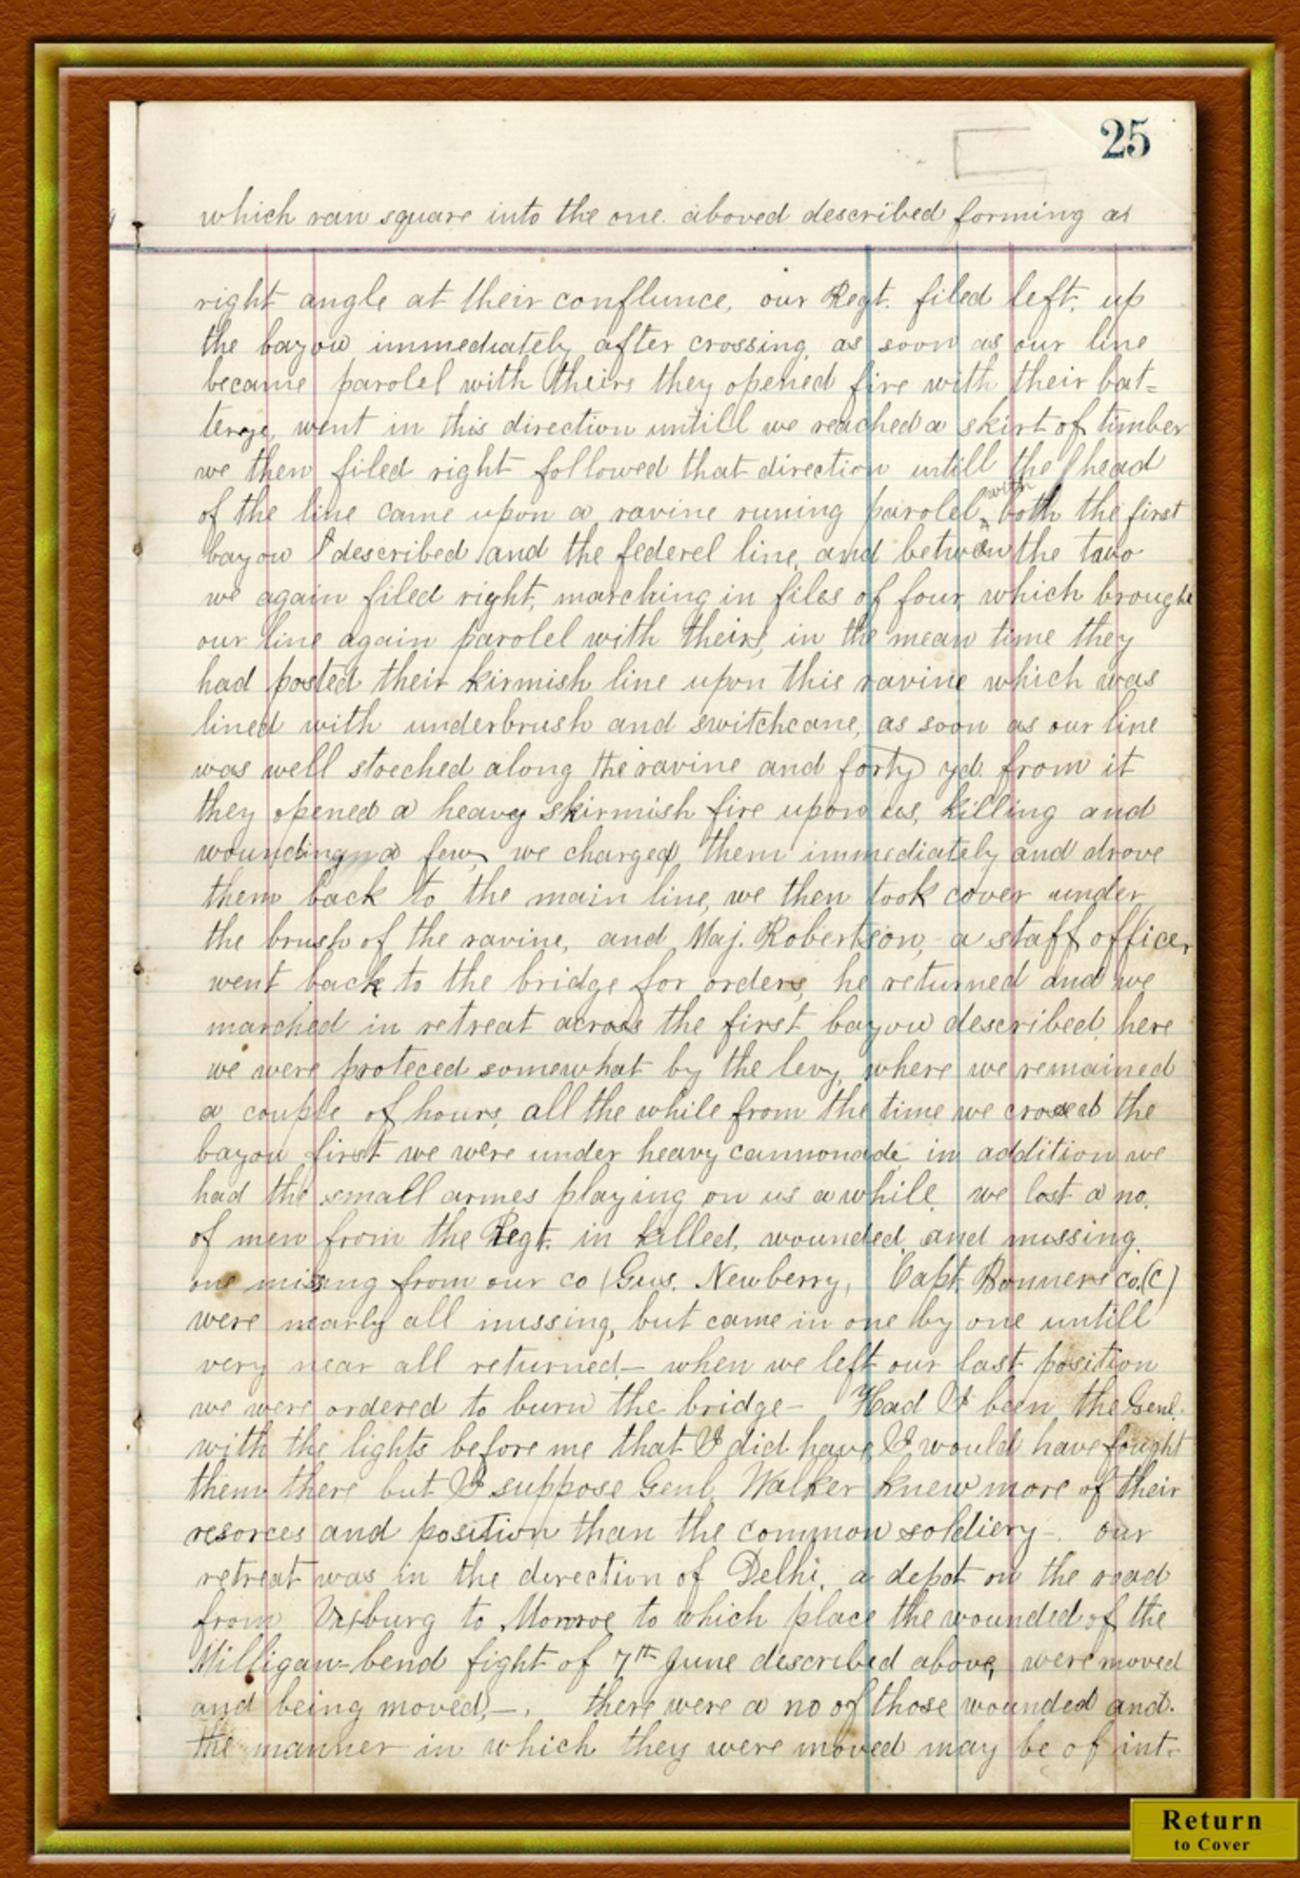 25
which ran square into the one aboved described forming as
right angle at their conflunce, our Regt. filed left, up
the bayou immediately after crossing, as soon as our line
became parolel with theirs they opened fire with their bat=
tereye, went in this direction untill we reached a skirt of timber
we then filed right followed that direction untill the head
of the line came upon a ravine runing parolel with both the first
bayou I described and the federel line, and betwen the two
we again filed right, marching in files of four which brought
our line again parolel with theirs, in the mean time they
had posted their skirmish line upon this ravine which was
lined with underbrush and switchcane, as soon as our line
was well streched along the ravine and forty yd. from it
they opened a heavy skirmish fire upon us, killing and
wounding a few, we charged them immediately and drove
them back to the main line, we then took cover under
the brush of the ravine, and Maj. Robertson, a staff officer,
went back to the bridge for orders, he returned and we
marched in retreat across the first bayou described, here
we were proteced somewhat by the levy, where we remained
a couple of hours, all the while from the time we crossed the
bayou first we were under heavy cannonade in addition we
had the small armes playing on us awhile, we lost a no.
of men from the Regt. in killed, wounded, and missing.
one missing from our co (Gus. Newberry, Capt. Bonners co.(C)
were nearly all missing, but came in one by one untill
very near all returned— when we left our last position
we were ordered to burn the bridge— Had I been the Genl.
with the lights before me that I did have, I would have fought
them there but I suppose Genl. Walker knew more of their
resorces and position than the common soldiery—. our
retreat was in the direction of Delhi, a depot on the road
from Vixburg to Monroe to which place the wounded of the
Milligan-bend fight of 7th June described above, were moved
and being moved,—. there were a no of those wounded and.
the manner in which they were moved may be of int-
Return
to Cover